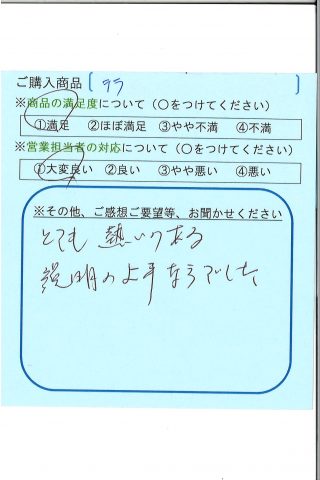 ご購入商品〔 テラ 〕
※商品の満足度について（○をつけてください）
①満足 ②ほぼ満足 ③やや不満 ④不満
※営業担当者の対応について（○をつけてください）
①大変良い ②良い ③やや悪い ④悪い
※その他、ご感想ご要望等、お聞かせください
とても 熱いのある
説明の上手な方でした